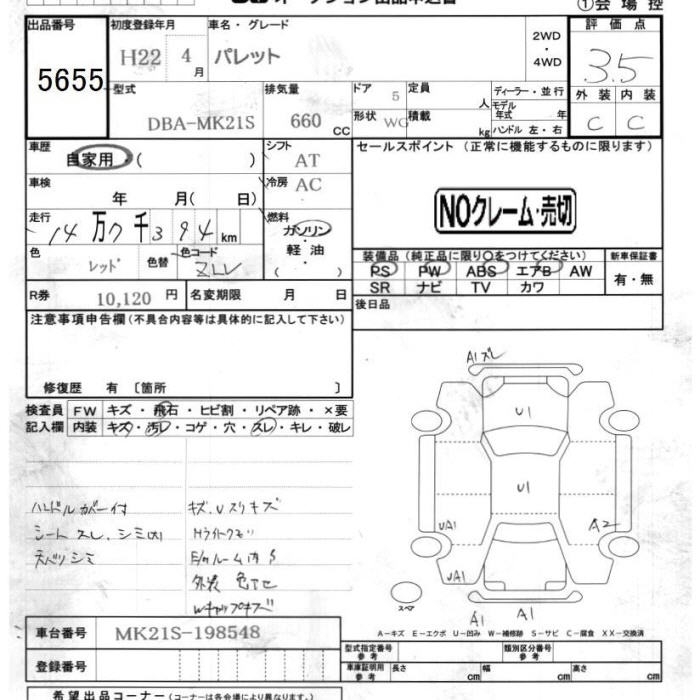 ①会場控
出品番号
5655
初度登録年月
H22 4月
車名・グレード
パレット
2WD
・
4WD
評価点
3.5
外装 内装
C C
型式
DBA-MK21S
排気量
660 CC
ドア 5
定員 人
形状 WG
積載 kg
ディーラー・並行
モデル年式 年
ハンドル 左・右
車歴
自家用・( )
シフト
AT
セールスポイント (正常に機能するものに限ります)
NOクレーム・売切
車検
年 月( 日)
冷房
AC
走行
14万7千394km
燃料
ガソリン
軽・油
( )
色
レッド
色替
色コード
ZLV
装備品 (純正品に限り○をつけてください)
新車保証書
PS PW ABS エアB AW
SR ナビ TV カワ
有・無
R券 10,120 円
名変期限 月 日
後日品
注意事項申告欄 (不具合内容等は具体的に記入して下さい)
修復歴 有 〔箇所 〕
検査員記入欄
FW キズ・飛石・ヒビ割・リペア跡・×要
内装 キズ・汚レ・コゲ・穴・スレ・キレ・破レ
ハンドルカバー付
シートスレ.シミ内
天ベリシミ
キズ.Uスリキズ
Hライトクモリ
E/gルーム内S
外装色アセ
Wキャップキズ
A1ズレ
U1
U1
UA1
UA1
A2
A1
A1
スペア
A－キズ E－エクボ U－凹み W－補修跡 S－サビ C－腐食 XX－交換済
車台番号
MK21S-198548
登録番号
型式指定番号
参考
類別区分番号
参考
車庫証明用
参考
長さ cm 幅 cm 高さ cm
希望出品コーナー(コーナーは各会場により異なります)